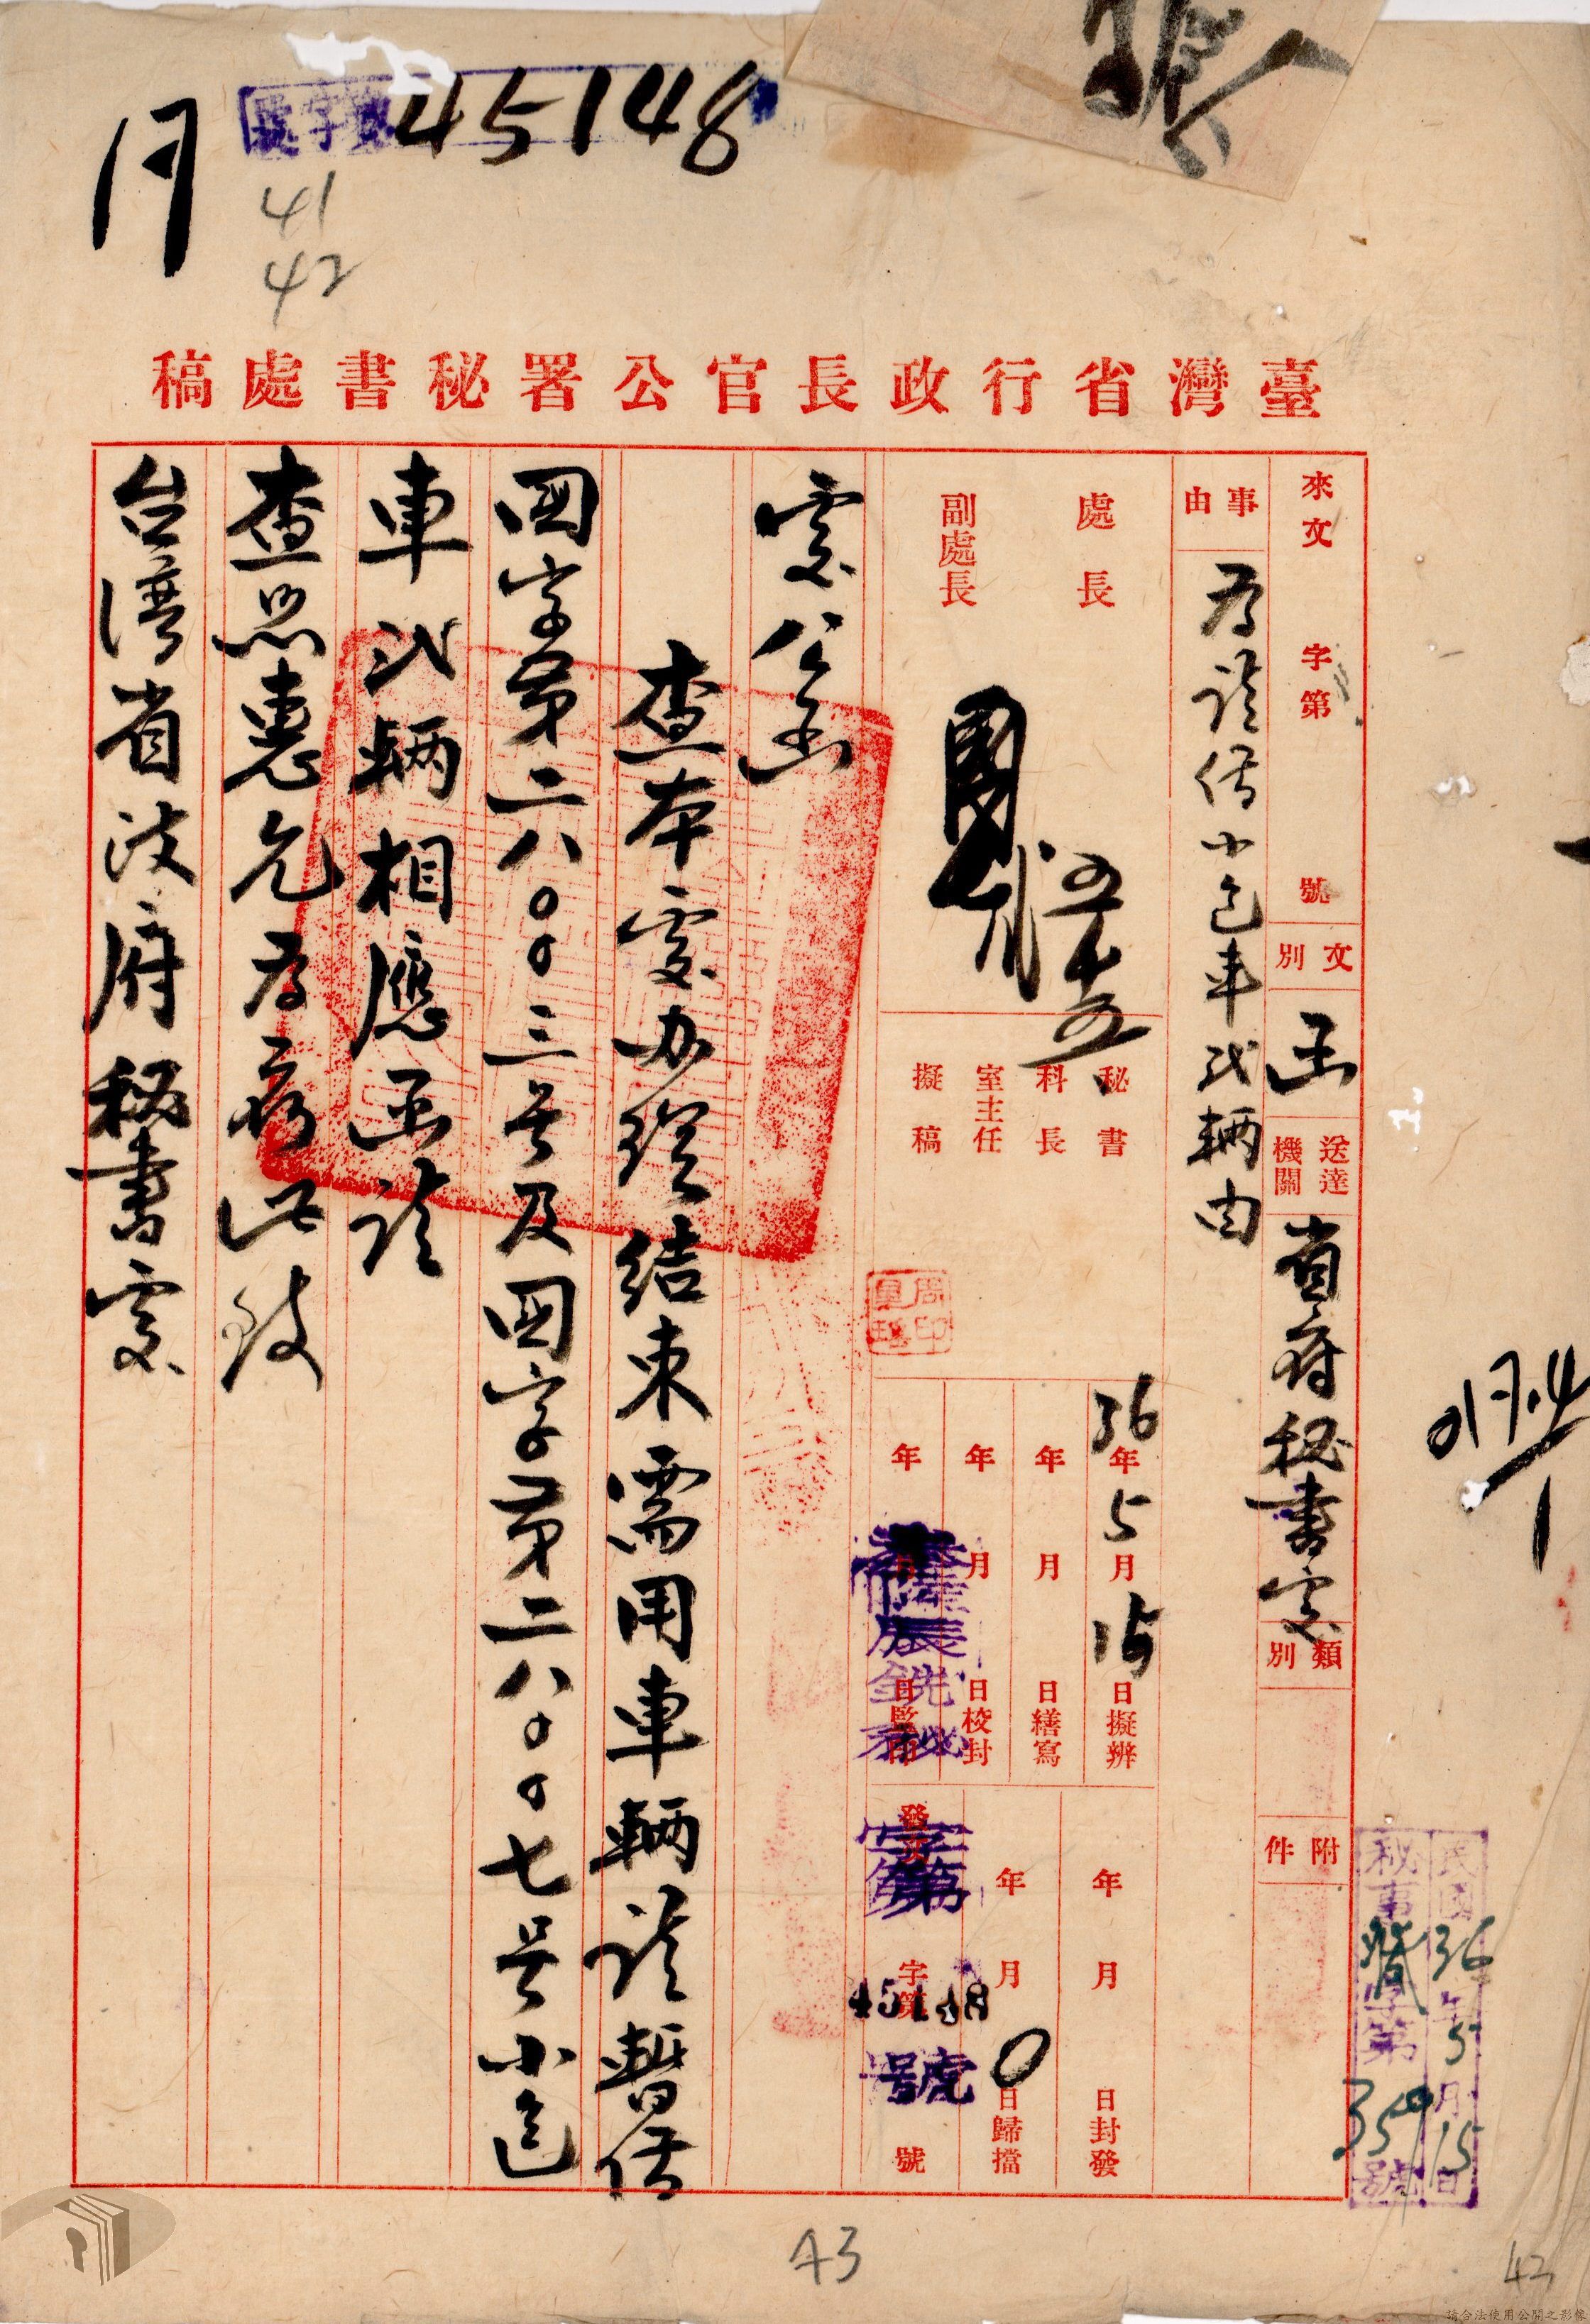 45148
41
42
臺灣省行政長官公署秘書處稿
來文 字第 號
文別 函
送達機關 省府秘書處
類別
附件
事由 為請借小包車弍輛由
處長
副處長
秘書
科長
室主任
擬稿
36年5月15日擬辦
年 月 日繕寫
年 月 日校封
年 月 日監印
年 月 日封發
年 月 日歸檔
發文 字第 號
字第
45148
號
處公函
查本處办理結束需用車輛請暫借
四字第二八〇〇三号及四字第二八〇〇七号小包
車弍輛相應函請
查照惠允為荷此致
台湾省政府秘書處
民國36年5月15日
字第359號
43
42
請合法使用公開之影像